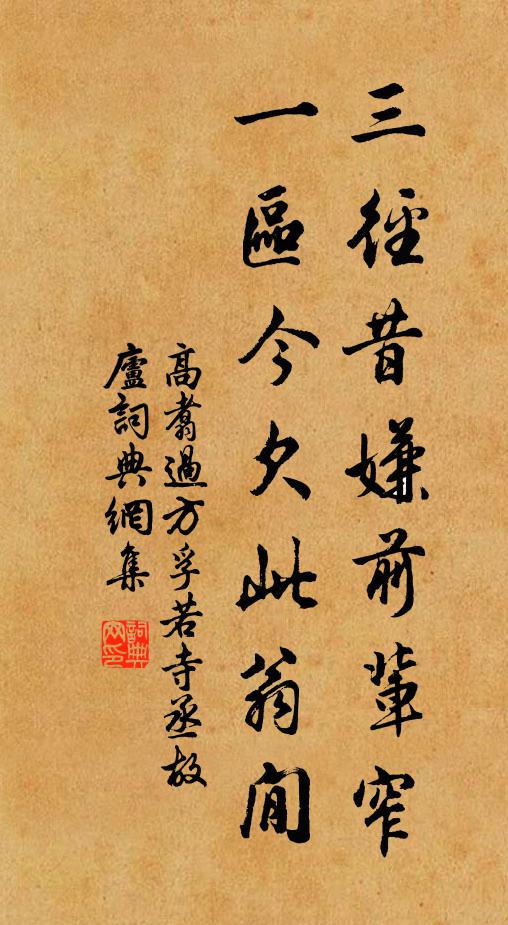 三徑昔嫌前輩窄
一區今欠此翁閒
高翥過方孚若寺丞故
廬詞典網集
詞典網印